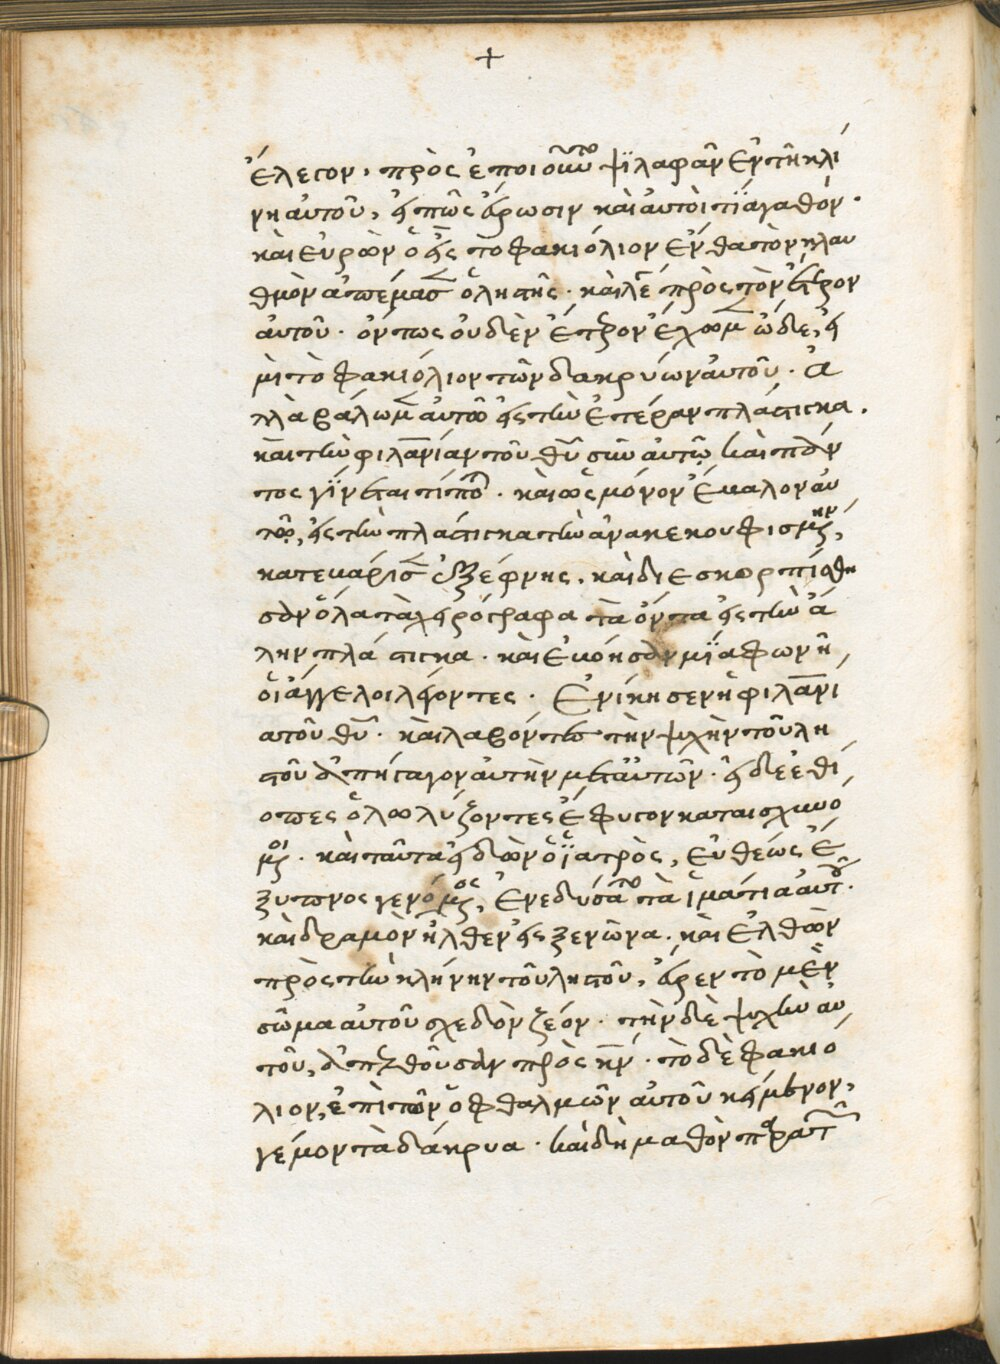 +
ἔλεγον· πρὸς ἐποιοῦντο ψϊλαφᾶν ἐν τῆ κλί
νη αὐτοῦ, εἴπως εὕρωσιν καὶ αὐτοὶ τϊ ἀγαθόν·
καὶ εὑρὼν ὁ εἷς τὸ φακιόλιον ἔνθα τὸν κλαυ
θμὸν ἀπέμασ ὁ ληστῆς· καὶ λέ πρὸς τὸν ἕτερον
αὐτοῦ· ὄντως οὐδὲν ἕτερον ἔχωμ ὧδε, εἰ
μὶ τὸ φακιόλιον τῶν δακρύων αὐτοῦ· ἀ
λλὰ βάλωμ αὐτὸ εἰς τὴν ἑτέραν πλάστιγκα.
καὶ τὴν φιλανίαν τοῦ θῦ σὺν αὐτῶ καὶ πάν
τος γίνεται τίποτ· καὶ ὡς μόνον ἔβαλον αὐ
τὸ, εἰς τὴν πλάστιγκα τὴν ἀνακεκουφισμνην,
κατεβάρισ ἐξέφνης. καὶ διεσκορπίσθη
σαν ὅλα τὰ χειρόγραφα τὰ ὄντα εἰς τὴν ἄ
λην πλάστιγκα· καὶ ἐβόησαν μϊᾶ φωνῆ
οἱ ἄγγελοι λέγοντες· Ἐνίκησεν ἡ φιλανί
α τοῦ θῦ· καὶ λαβόντες τὴν ψυχὴν τοῦ λη
στοῦ ἀπήγαγον αὐτὴν μετ αὐτῶν· οἱ δὲ ἐθί
οπες ὀλωλύζοντες ἔφυγον καταισχυνό
μνοι· καὶ ταῦτα εἰδὼν ὁ ἰατρὸς, εὐθέως ἔ
ξυπνος γενόμνος, ἐνεδύσατο τὰ ἱμάτια αὐτοῦ·
καὶ δραμὸν ἦλθεν εἰς ξενῶνα. καὶ ἐλθὼν
πρὸς τὴν κλήνην τοῦ ληστοῦ, εὗρεν τὸ μὲν
σῶμα αὐτοῦ σχεδὸν ζέον· τὴν δὲ ψυχὴν αὐ
τοῦ, ἀπελθοῦσαν πρὸς κν· τὸ δὲ φακιό
λιον, ἐπὶ τῶν ὀφθαλμῶν αὐτοῦ κείμενον,
γέμον τὰ δάκρυα· καὶ δὴ μαθὸν παρὰ τῶν